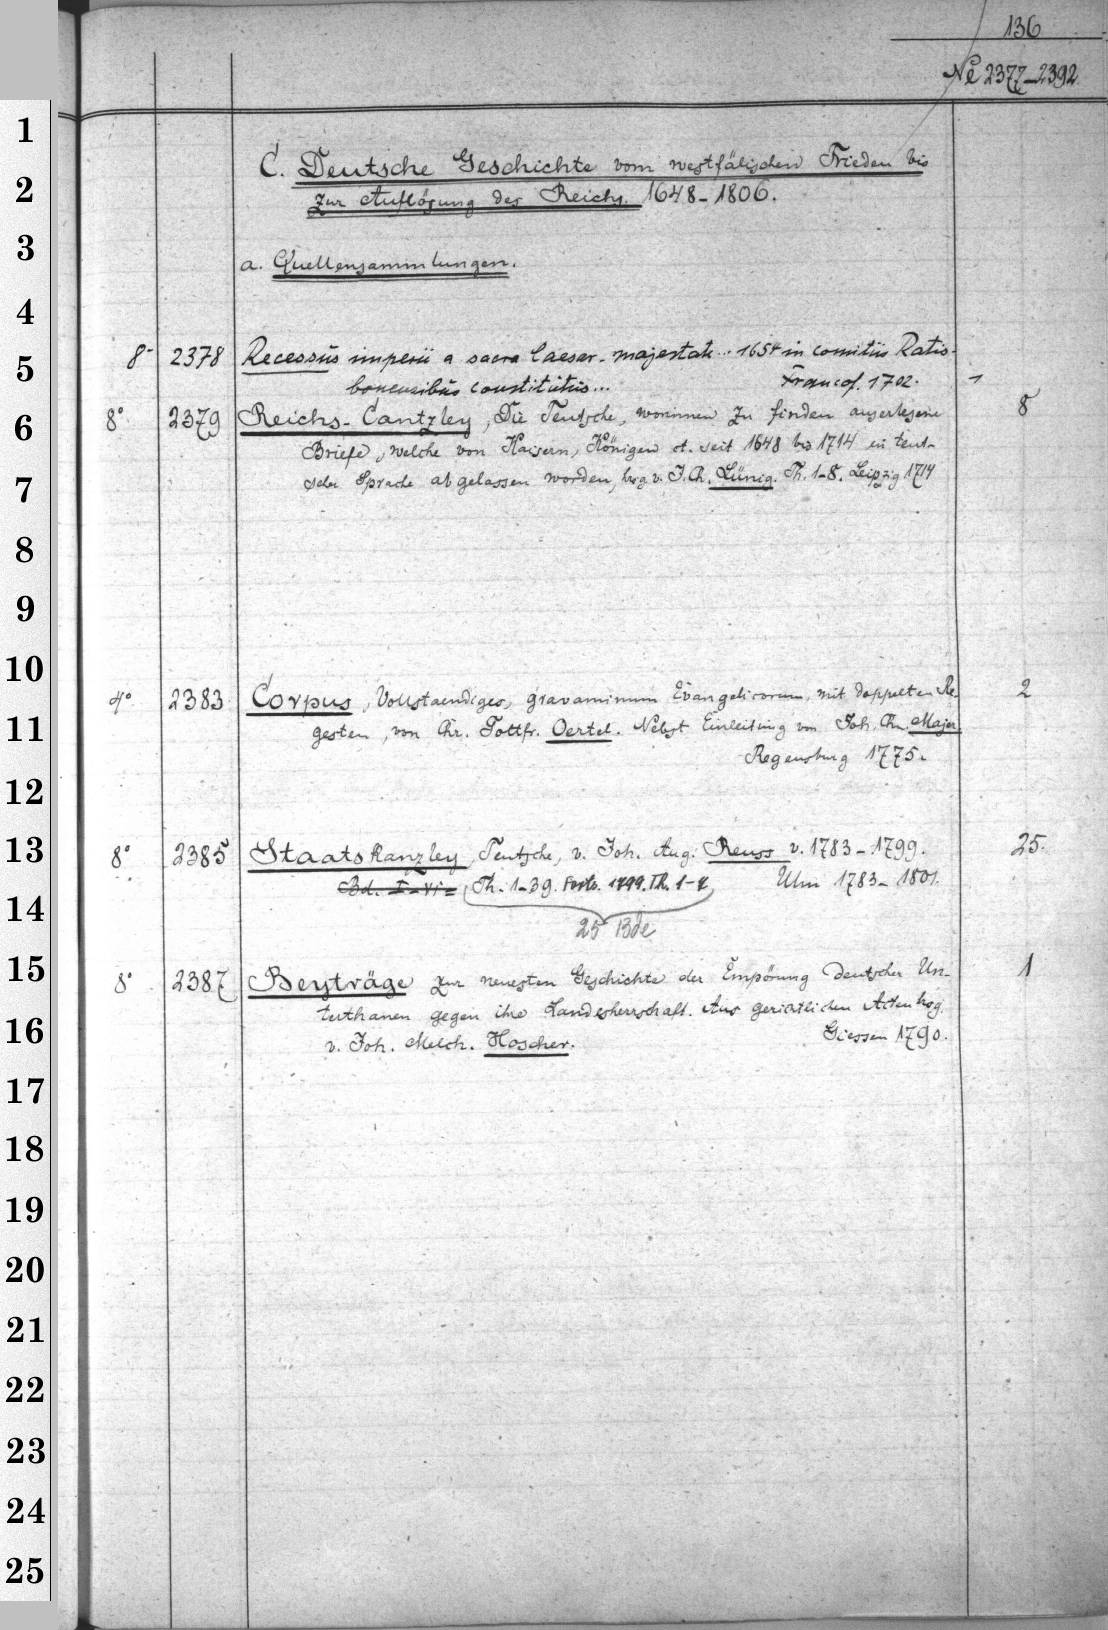 136
No 2377-2392
1
C. Deutsche Geschichte vom westfälischen Frieden bis
2
zur Auflösung des Reichs. 1648-1806.
3
a. Quellensammlungen.
4
5
8° 2378 Recessus imperii a sacra Caesar. majestate... 1654 in comitiis Ratis-
bonensibus constitutus... Francof. 1702. 1
6
8° 2379 Reichs-Cantzley, Die Teutsche, worinnen zu finden auserlesene 8
Briefe, welche von Kaisern, Königen et. seit 1648 bis 1714 in teut-
7
scher Sprache abgelassen worden, hrsg v. J. Ch. Lünig. Th. 1-8. Leipzig 1714
8
9
10
4° 2383 Corpus, Vollstaendiges, gravaminum Evangelicorum, mit doppelten Re- 2
11
gesten, von Chr. Gottfr. Oertel. Nebst Einleitung von Joh. Chr. Majer.
Regensburg 1775.
12
13
8° 2385 Staatskanzley, Teutsche, v. Joh. Aug. Reuss v. 1783-1799. 25.
Bd. I-VI= Th. 1-39. Forts. 1799. Th. 1-7 Ulm 1783-1801.
14
25 Bde
15
8° 2387 Beyträge zur neuesten Geschichte der Empörung deutscher Un- 1
terthanen gegen ihre Landesherrschaft. Aus gerichtlichen Acten hrsg.
16
v. Joh. Melch. Hoscher. Giessen 1790.
17
18
19
20
21
22
23
24
25